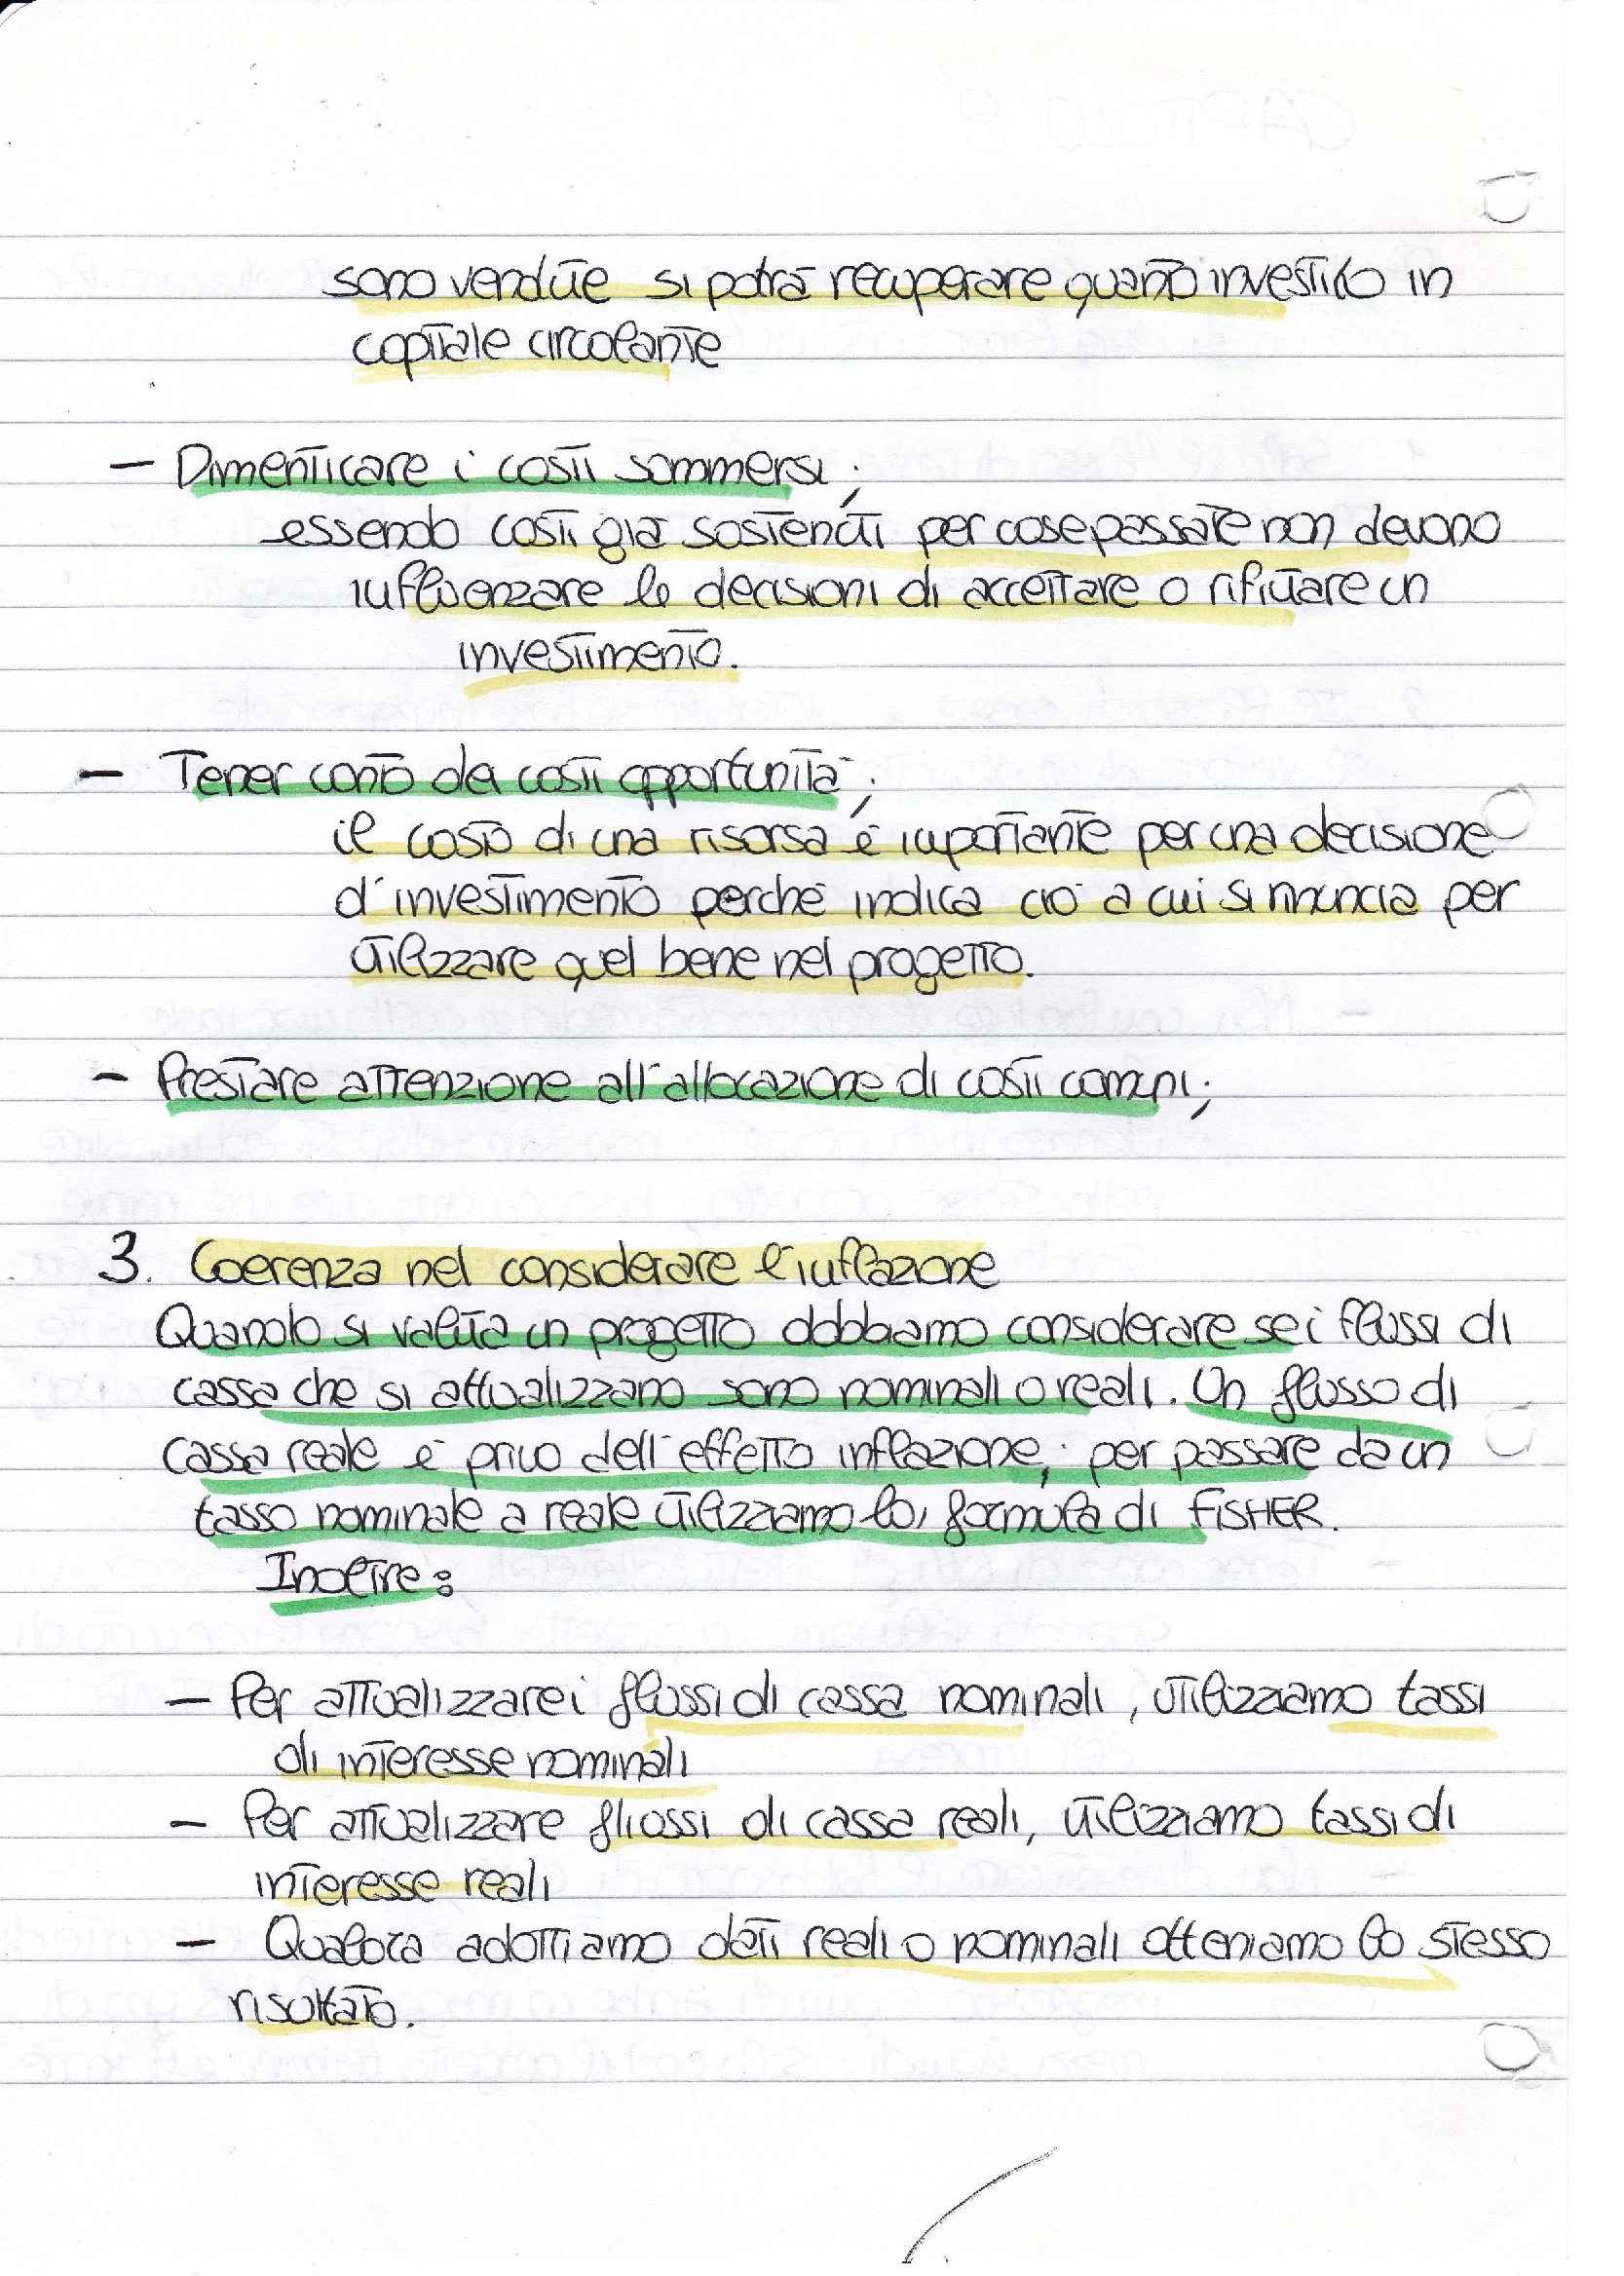 sono vendute si potrà recuperare quanto investito in
capitale circolante
- Dimenticare i costi sommersi;
essendo costi già sostenuti per cose passate non devono
influenzare le decisioni di accettare o rifiutare un
investimento.
- Tener conto dei costi opportunità;
il costo di una risorsa è importante per una decisione
d'investimento perché indica ciò a cui si rinuncia per
utilizzare quel bene nel progetto.
- Prestare attenzione all'allocazione di costi comuni;
3. Coerenza nel considerare l'inflazione
Quando si valuta un progetto dobbiamo considerare se i flussi di
cassa che si attualizzano sono nominali o reali. Un flusso di
cassa reale è privo dell'effetto inflazione; per passare da un
tasso nominale a reale utilizziamo la formula di FISHER.
Inoltre:
- Per attualizzare i flussi di cassa nominali, utilizziamo tassi
di interesse nominali
- Per attualizzare flussi di cassa reali, utilizziamo tassi di
interesse reali
- Qualora adottiamo dati reali o nominali otteniamo lo stesso
risultato.